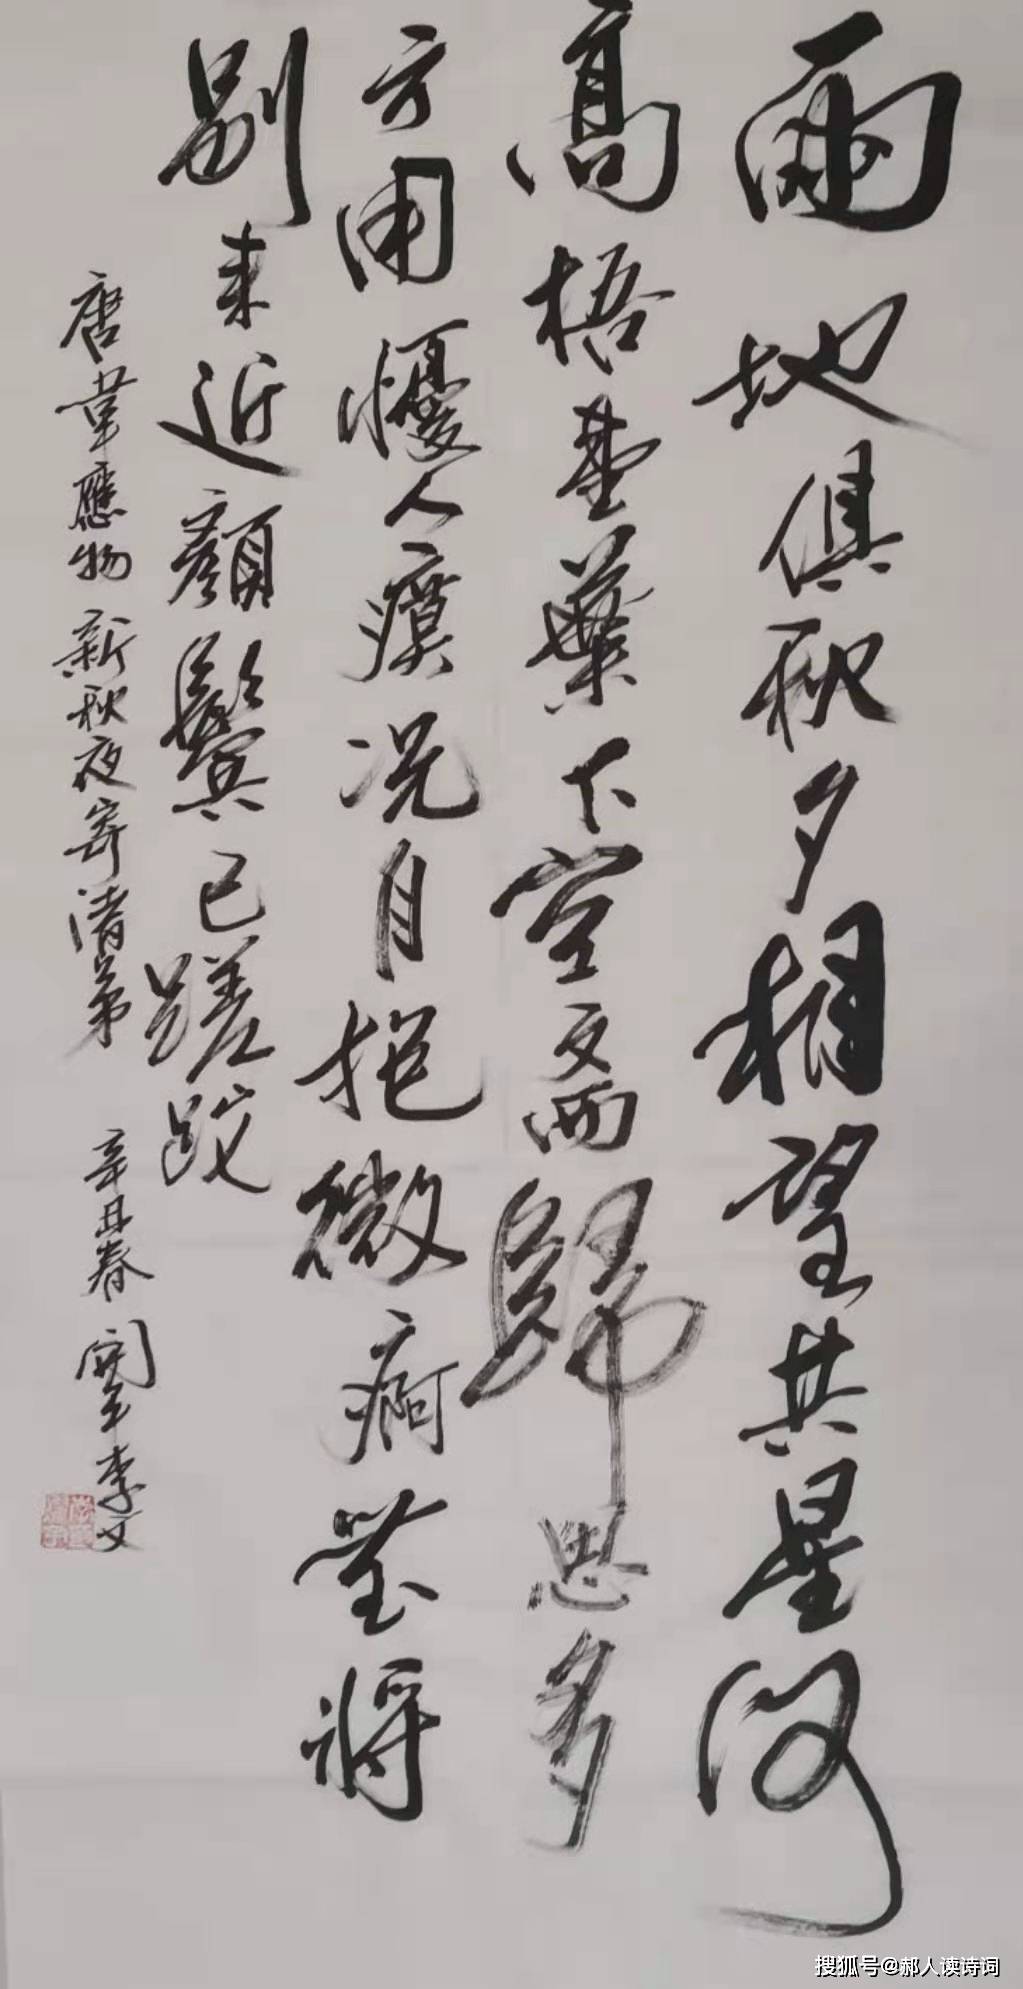 兩地俱秋夕相望共星河
高梧壹葉下空斋歸思多
方用懮人瘼况自抱微痾無将
别来近顔鬢已蹉跎
唐韋應物新秋夜寄諸弟 辛丑春 李文
搜狐号@郝人读诗词